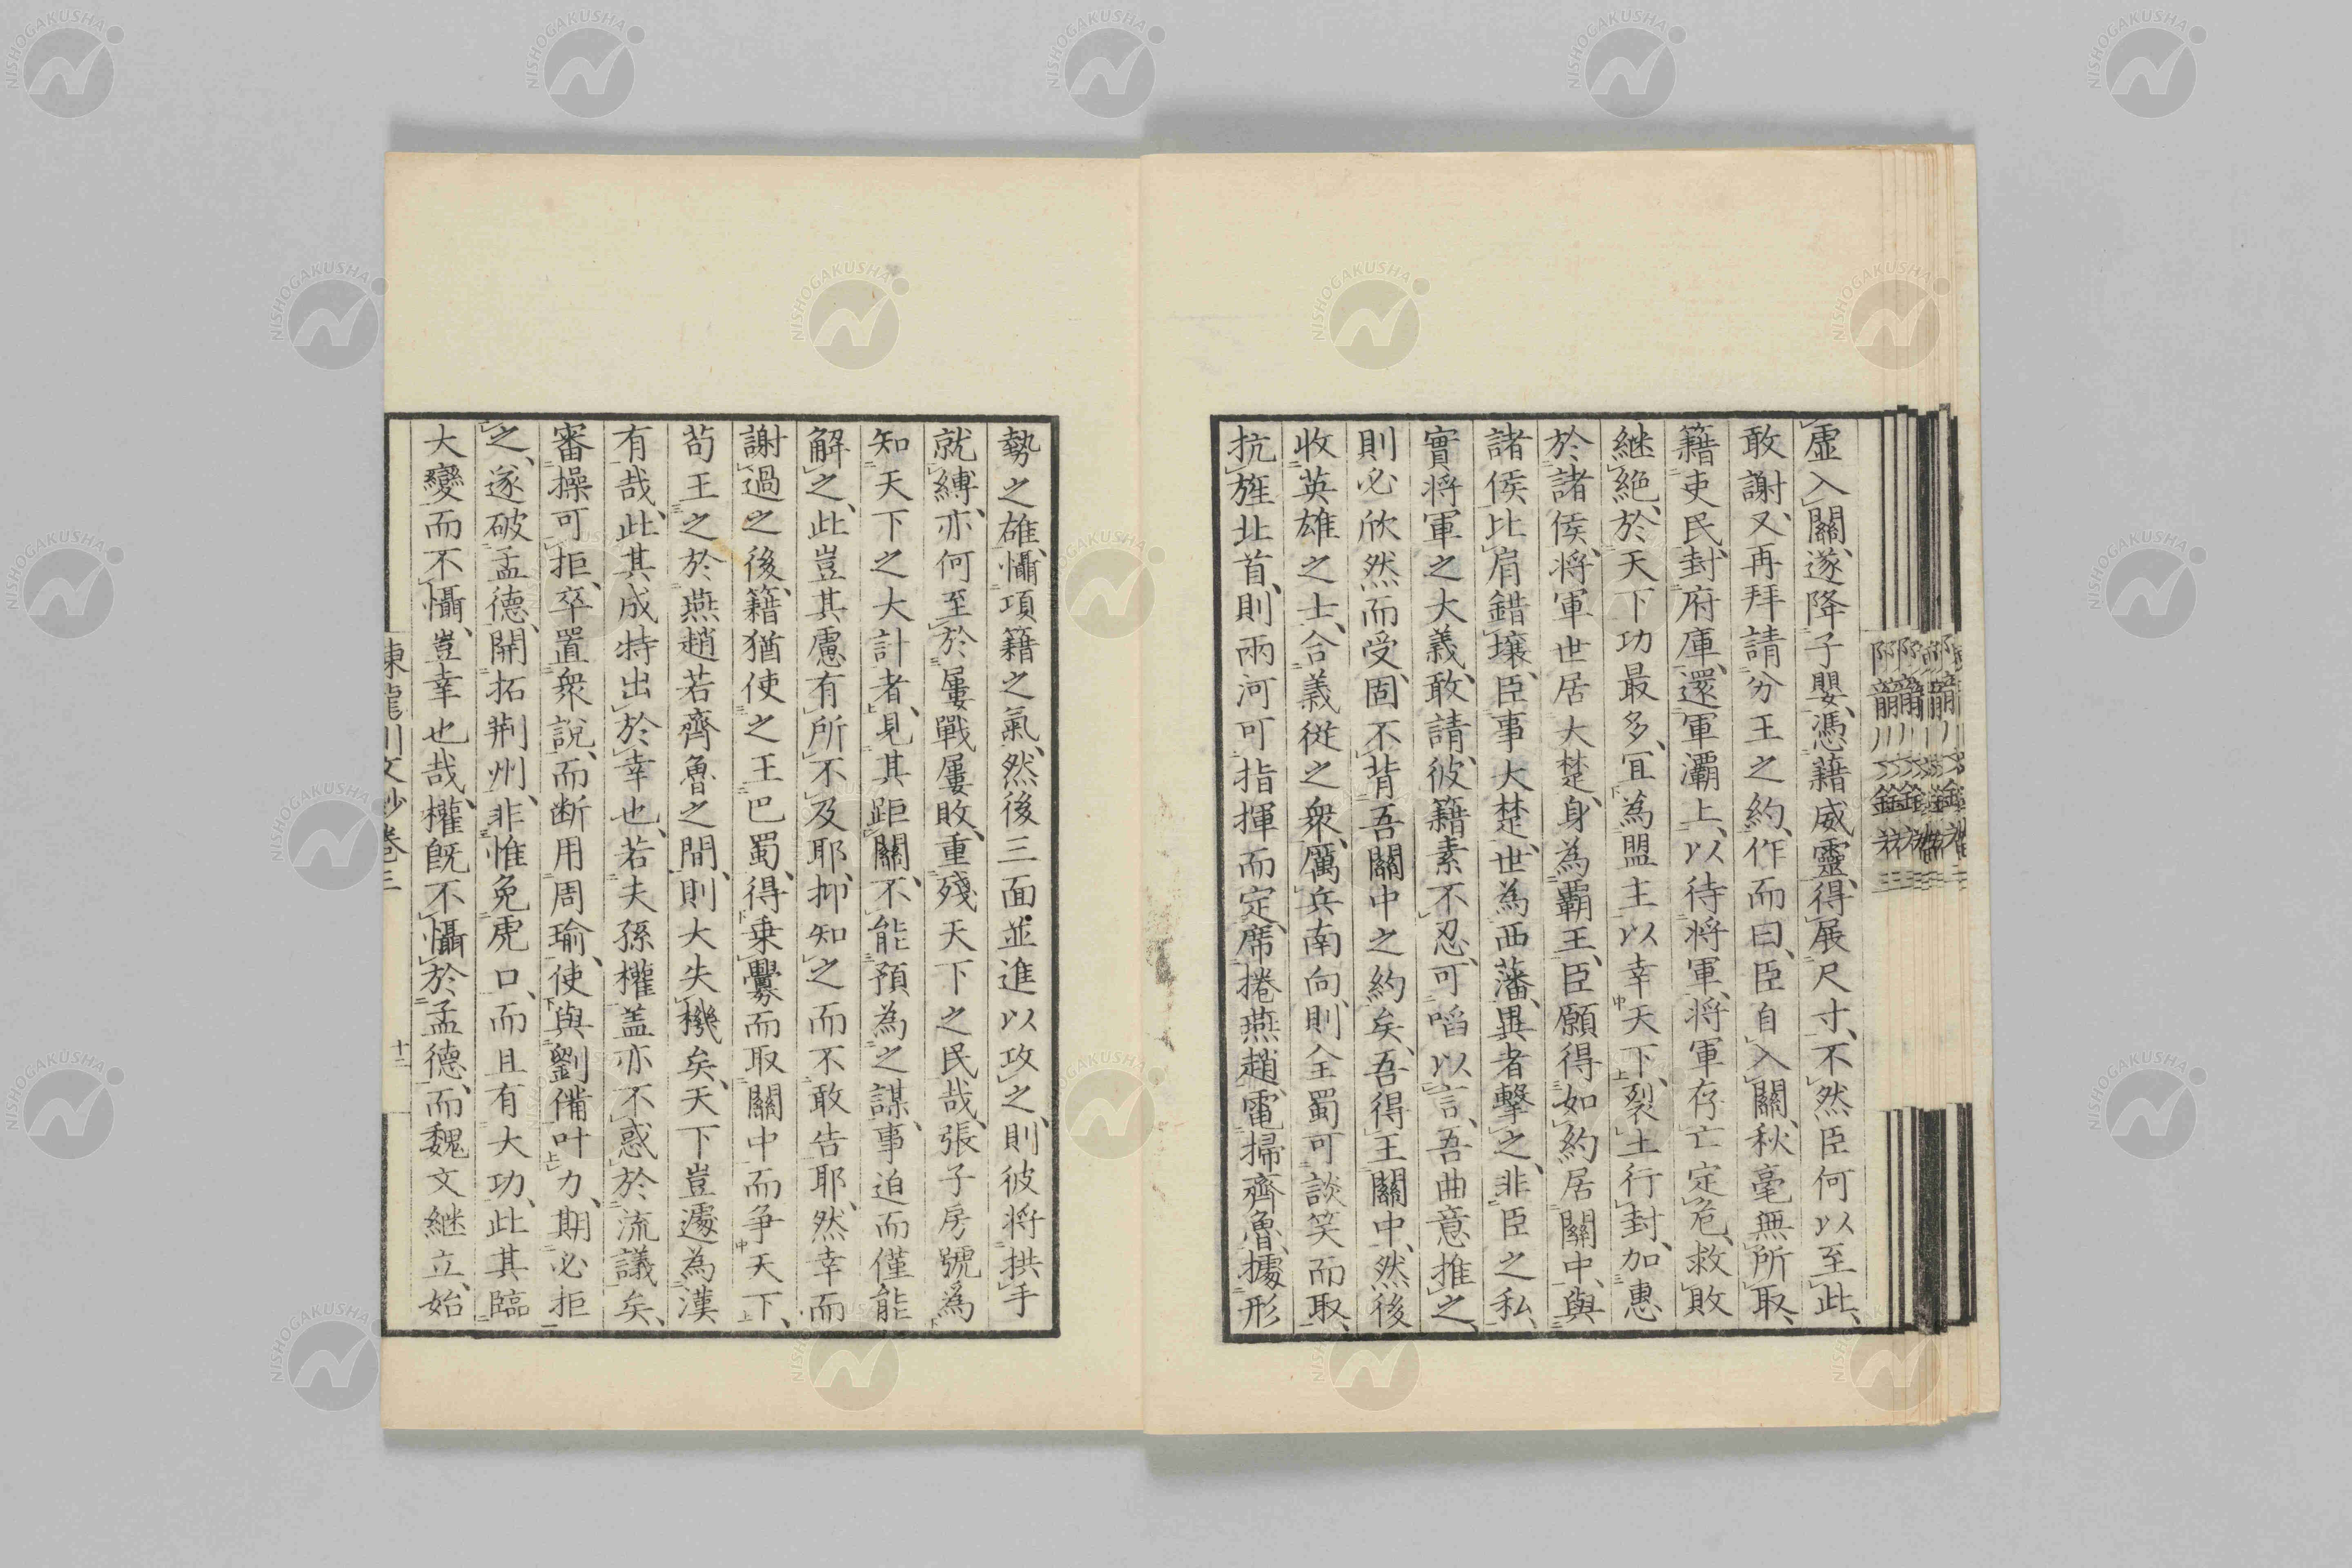 虛入關、遂降子嬰、憑藉威靈、得展尺寸、不然臣何以至此、
敢謝、又再拜請分王之約、作而曰、臣自入關、秋毫無所取、
籍吏民、封府庫、還軍灞上、以待將軍、將軍存亡定危、救敗
継絕、於天下功最多、宜為盟主以幸天下、裂土行封、加惠
於諸侯、將軍世居大楚、身為霸王、臣願得如約居關中、與
諸侯比肩錯壤、臣事大楚、世為西藩、異者擊之、非臣之私、
實將軍之大義、敢請、彼籍素不忍、可啗以言、吾曲意推之、
則必欣然而受、固不背吾關中之約矣、吾得王關中、然後
收英雄之士、合義從之衆、厲兵南向、則全蜀可談笑而取、
抗旌北首、則兩河可指揮而定、席捲燕趙、電掃齊魯、據形
勢之雄、懾項籍之氣、然後三面並進以攻之、則彼將拱手
就縛、亦何至於屢戰屢敗、重殘天下之民哉、張子房號為
知天下之大計者、見其距關、不能預為之謀、事迫而僅能
解之、此豈其慮有所不及耶、抑知之而不敢告耶、然幸而
謝過之後、籍猶使之王巴蜀、得乗釁而取關中而爭天下、
苟王之於燕趙若齊魯之間、則大失機矣、天下豈遽為漢
有哉、此其成特出於幸也、若夫孫權盖亦不惑於流議矣、
審操可拒、卒置衆說、而断用周瑜、使與劉備叶力、期必拒
之、遂破孟德、開拓荆州、非惟免虎口、而且有大功、此其臨
大變而不懾、豈幸也哉、權旣不懾於孟德、而魏文継立、始
陳龍川文抄卷三
十二